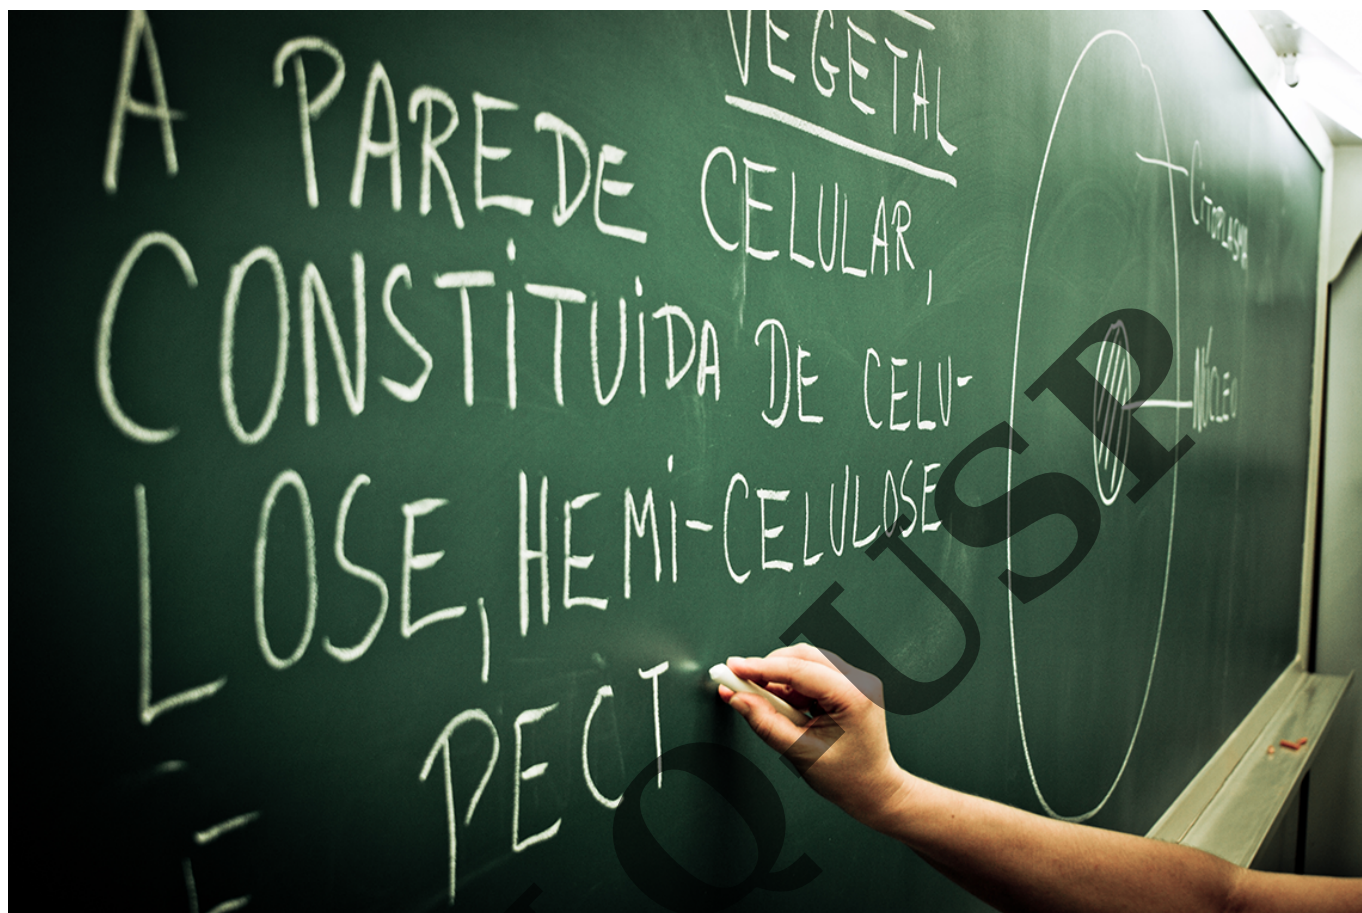 VEGETAL
A PAREDE CELULAR,
CONSTITUIDA DE CELU-
LOSE, HEMI-CELULOSE
E PECT
CITOPLASMA
NÚCLEO
QIUSP